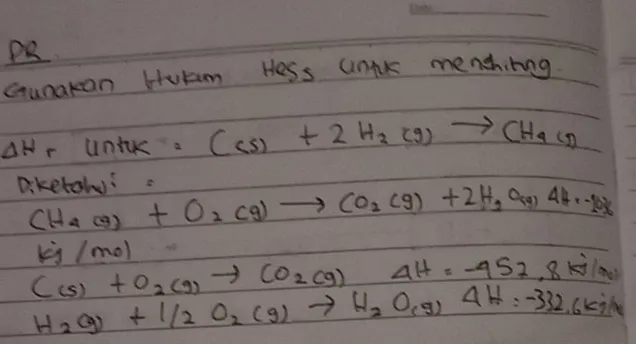 PR
Gunakan Hukum Hess untuk menghitung
ΔHr untuk = C(s) + 2 H2 (g) → CH4 (g)
Diketahui =
CH4 (g) + O2 (g) → CO2 (g) + 2H2O(g) ΔH =
kj / mol
C(s) + O2 (g) → CO2 (g) ΔH = -452,8 kj/mol
H2(g) + 1/2 O2 (g) → H2O(g) ΔH = -332,6 kj/